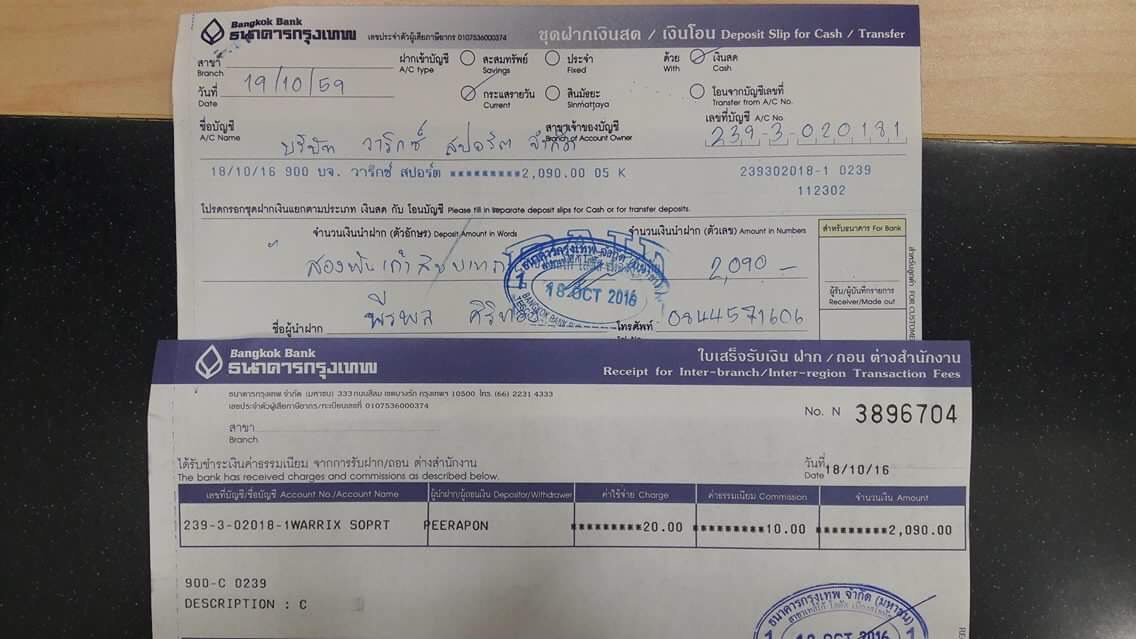 Bangkok Bank
ธนาคารกรุงเทพ เลขประจำตัวผู้เสียภาษีอากร 0107536000374 ชุดฝากเงินสด / เงินโอน Deposit Slip for Cash / Transfer
สาขา Branch ฝากเข้าบัญชี A/C type สะสมทรัพย์ Savings ประจำ Fixed ด้วย With เงินสด Cash
วันที่ Date 19/10/59 กระแสรายวัน Current สินมัธยะ Sinmattaya โอนจากบัญชีเลขที่ Transfer from A/C No.
ชื่อบัญชี A/C Name บริษัท วาริกซ์ สปอร์ต จำกัด สาขาเจ้าของบัญชี Branch of Account Owner เลขที่บัญชี A/C No. 239-3-020181
18/10/16 900 บจ. วาริกซ์ สปอร์ต *********2,090.00 05 K 239302018-1 0239
112302
โปรดกรอกชุดฝากเงินแยกตามประเภท เงินสด กับ โอนบัญชี Please fill in separate deposit slips for Cash or for transfer deposits.
จำนวนเงินนำฝาก (ตัวอักษร) Deposit Amount in Words จำนวนเงินนำฝาก (ตัวเลข) Amount in Numbers สำหรับธนาคาร For Bank
สองพันเก้าสิบบาท 2,090 -
ธนาคารกรุงเทพ จำกัด
18 OCT 2016
BANGKOK BANK
ผู้รับ/ผู้บันทึกรายการ
Receiver/Made out
ชื่อผู้นำฝาก พีรพล โทรศัพท์ 0844571606
FOR CUSTOME
Bangkok Bank
ธนาคารกรุงเทพ
ใบเสร็จรับเงิน ฝาก / ถอน ต่างสำนักงาน
Receipt for Inter-branch/Inter-region Transaction Fees
ธนาคารกรุงเทพ จำกัด (มหาชน) 333 ถนนสีลม เขตบางรัก กรุงเทพฯ 10500 โทร. (66) 2231 4333
เลขประจำตัวผู้เสียภาษีอากร/ทะเบียนเลขที่ 0107536000374
No. N 3896704
สาขา
Branch
ได้รับชำระเงินค่าธรรมเนียม จากการรับฝาก/ถอน ต่างสำนักงาน
The bank has received charges and commissions as described below.
วันที่ Date 18/10/16
เลขที่บัญชี/ชื่อบัญชี Account No./Account Name ผู้นำฝาก/ผู้ถอนเงิน Depositor/Withdrawer ค่าใช้จ่าย Charge ค่าธรรมเนียม Commission จำนวนเงิน Amount
239-3-02018-1WARRIX SOPRT PEERAPON *********20.00 *********10.00 *********2,090.00
900-C 0239
DESCRIPTION : C
ธนาคารกรุงเทพ จำกัด (มหาชน)
18 OCT 2016